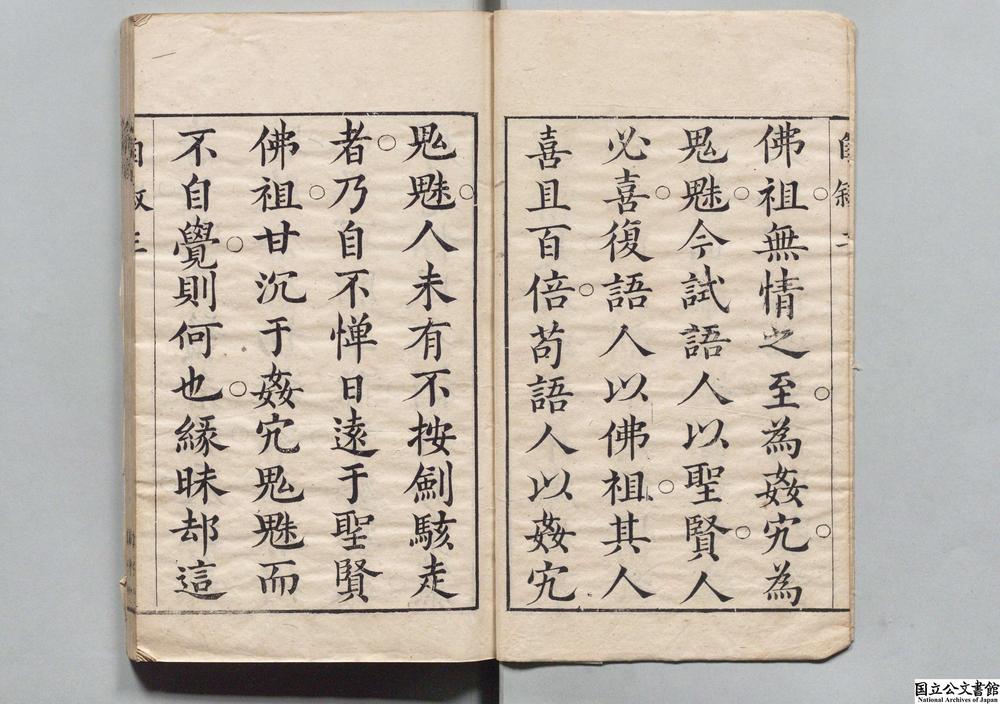 佛祖無情之至為姦宄為
鬼魅今試語人以聖賢人
必喜復語人以佛祖其人
喜且百倍茍語人以姦宄
鬼魅人未有不按劍駭走
者乃自不憚日遠于聖賢
佛祖甘沉于姦宄鬼魅而
不自覺則何也緣昧却這
国立公文書館
National Archives of Japan